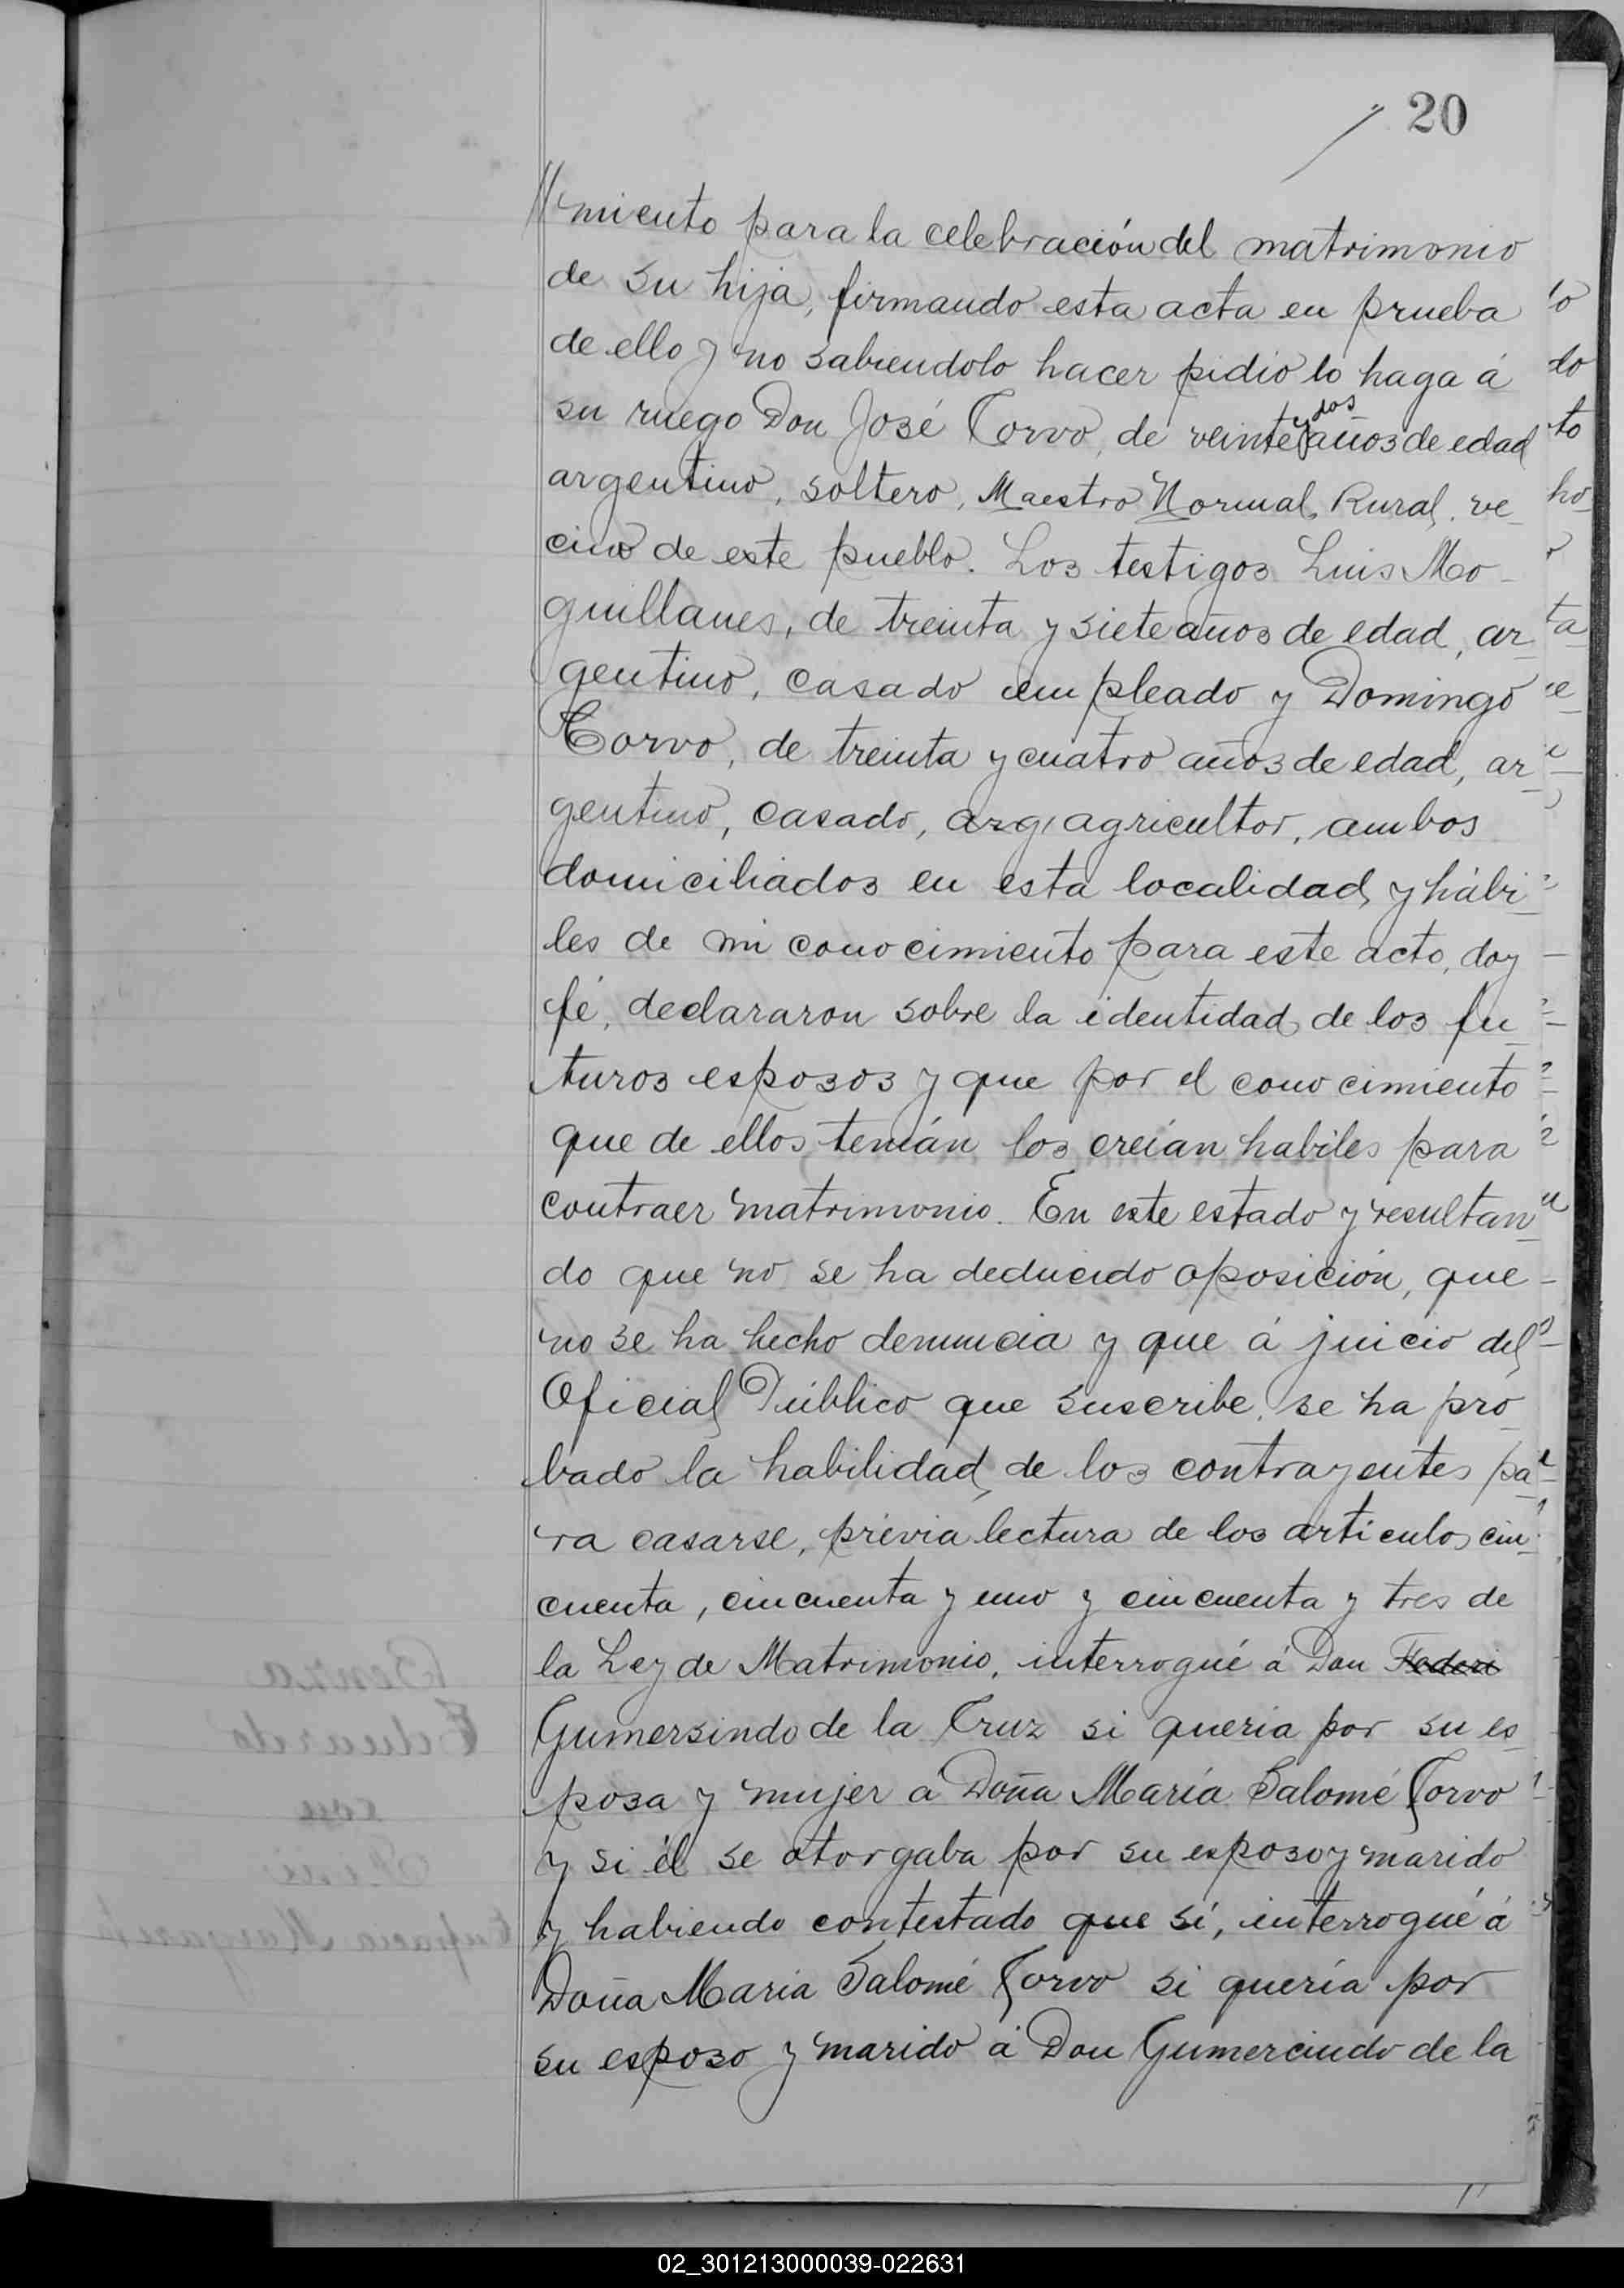 20
miento para la celebración del matrimonio
de su hija, firmando esta acta en prueba
de ello y no sabiendolo hacer pidió lo haga á
su ruego Don José Corvo, de veinte y dos años de edad
argentino, soltero, Maestro Normal Rural, ve
cino de este pueblo. Los testigos Luis Mo
guillanes, de treinta y siete años de edad, ar
gentino, casado empleado y Domingo
Corvo, de treinta y cuatro años de edad, ar
gentino, casado, arg agricultor, ambos
domiciliados en esta localidad y hábi
les de mi conocimiento para este acto, doy
fé, declararon sobre la identidad de los fu
turos esposos y que por el conocimiento
que de ellos tenián los creían habiles para
contraer matrimonio. En este estado y resultan
do que no se ha deducido oposición, que
no se ha hecho denuncia y que á juicio del
Oficial Público que suscribe, se ha pro
bado la habilidad de los contrayentes pa
ra casarse, previa lectura de los articulos cin
cuenta, cincuenta y uno y cincuenta y tres de
la Ley de Matrimonio, interrogué á Don Federi
Gumersindo de la Cruz si queria por su es
posa y mujer á Doña María Salomé Corvo
y si él se otorgaba por su esposo y marido
y habiendo contestado que sí, interrogué á
Doña Maria Salomé Corvo si quería por
su esposo y marido á Don Gumercindo de la
02_301213000039-022631